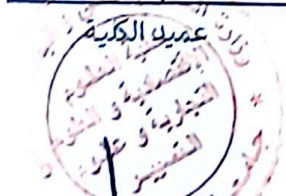 عميد الكلية
العلوم
الاقتصادية و العلوم
التجارية و علوم
التسيير